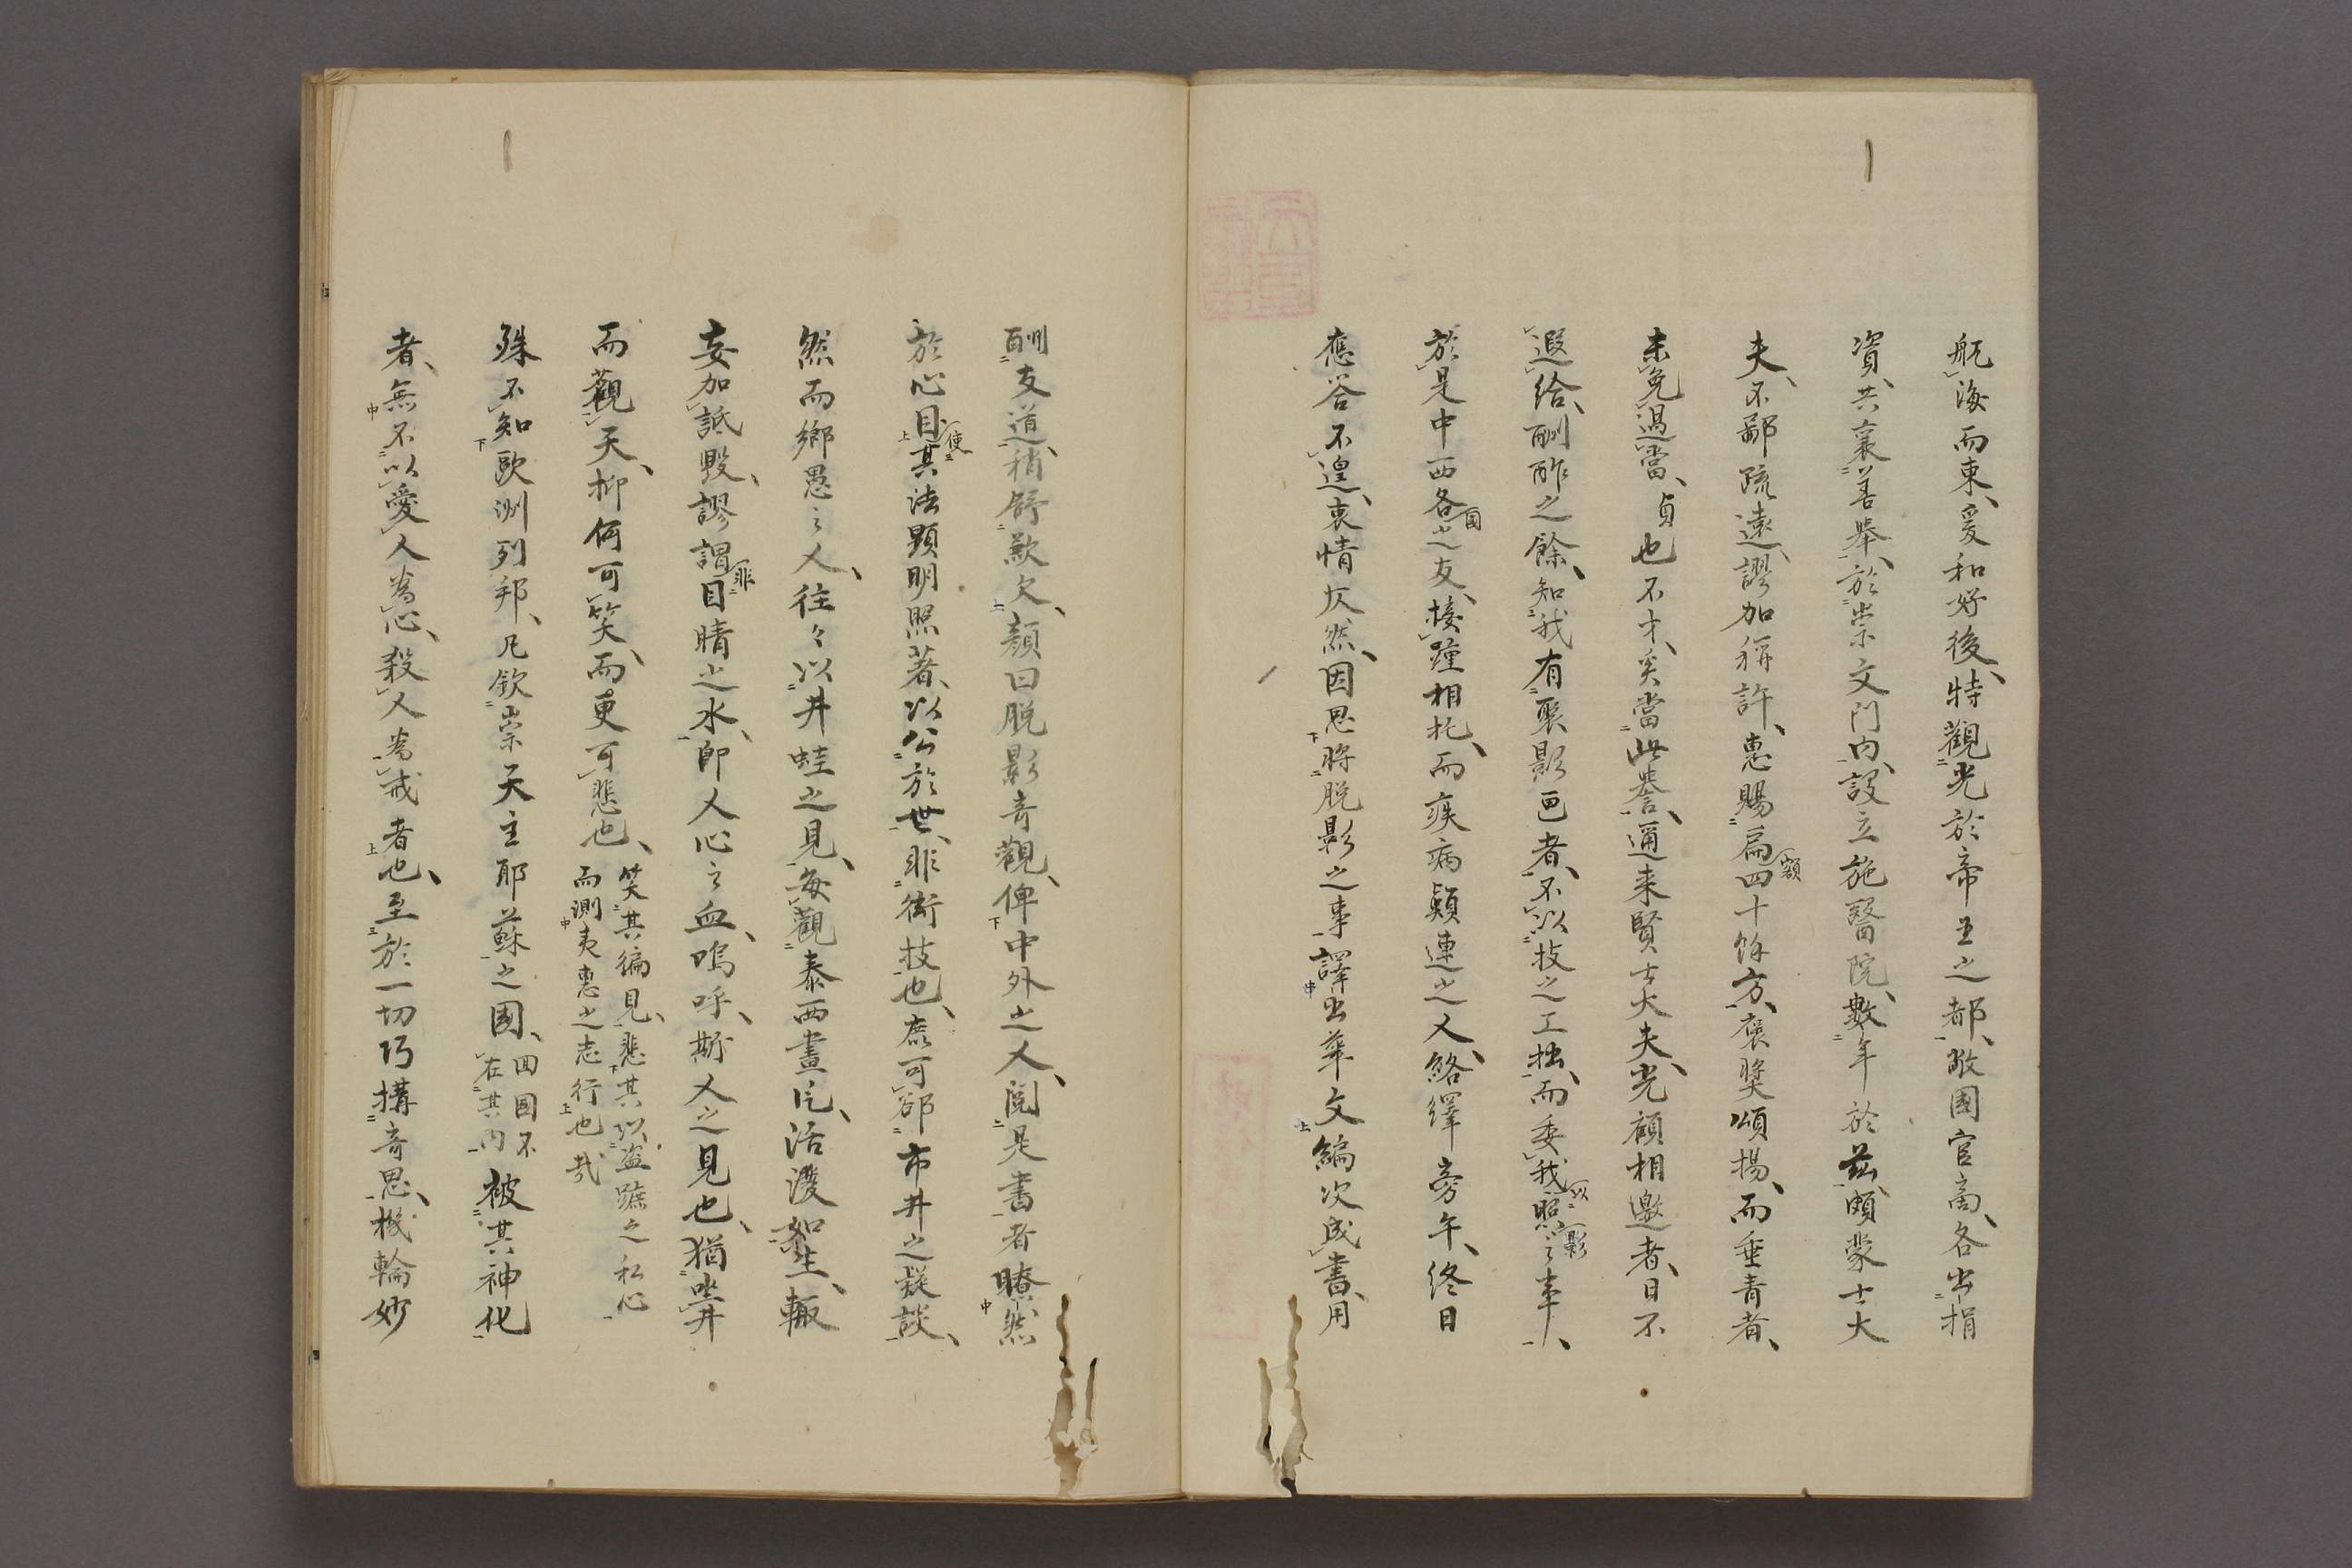 航海而東、爰和好後、特觀光於帝王之都、敝國官商、各出捐
資、共襄善舉、於崇文門内、設立施醫院、數年於茲、頗蒙士大
夫、不鄙疏遠、謬加稱許、惠賜扁額四十餘方、褒奬頌揚、而垂青者、
未免過當、貞也不才、奚當此譽、邇来賢士大夫、光顧相邀者、日不
遐給、酬酢之餘、知我有聚影画者、不以技之工拙、而委我以照影之事、
於是中西各國之友、接踵相托、而疾病顛連之人、絡繹旁午、終日
應答不遑、衷情仄然、因思將脱影之事譯出華文編次成書、用
酬友道、稍舒歉欠、顏曰脱影奇觀、俾中外之人、閲是書者瞭然
於心目、使其法顯明照著、以公於世、非衒技也、庶可郤市井之疑談、
然而鄉愚之人、往々以井蛙之見、每觀泰西畫片、活潑如生、輙
妄加詆毀、謬謂非目睛之水、即人心之血、嗚呼、斯人之見也、猶坐井
而觀天、抑何可笑、而更可悲也、
笑其徧見、悲其以盜蹠之私心
而測夷惠之志行也哉
殊不知歐洲列邦、凡欽崇天主耶蘇之國、
回國不
在其内
被其神化
者、無不以愛人為心、殺人為戒者也、至於一切巧搆奇思、機輪妙